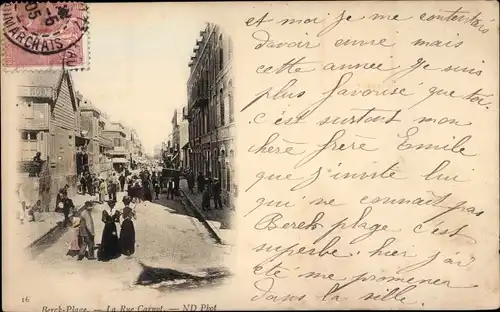 et moi je me contentais
davoir une mais
cette année Je suis
plus favorise que toi.
c'est surtout mon
cher frère Emile
que j'invite lui
qui ne connait pas
Berck plage c'est
superbe hier j'ai
été me promener
dans la ville.
16 Berck-Plage. — La Rue Carnot. — ND Phot
MARCHAIS
05